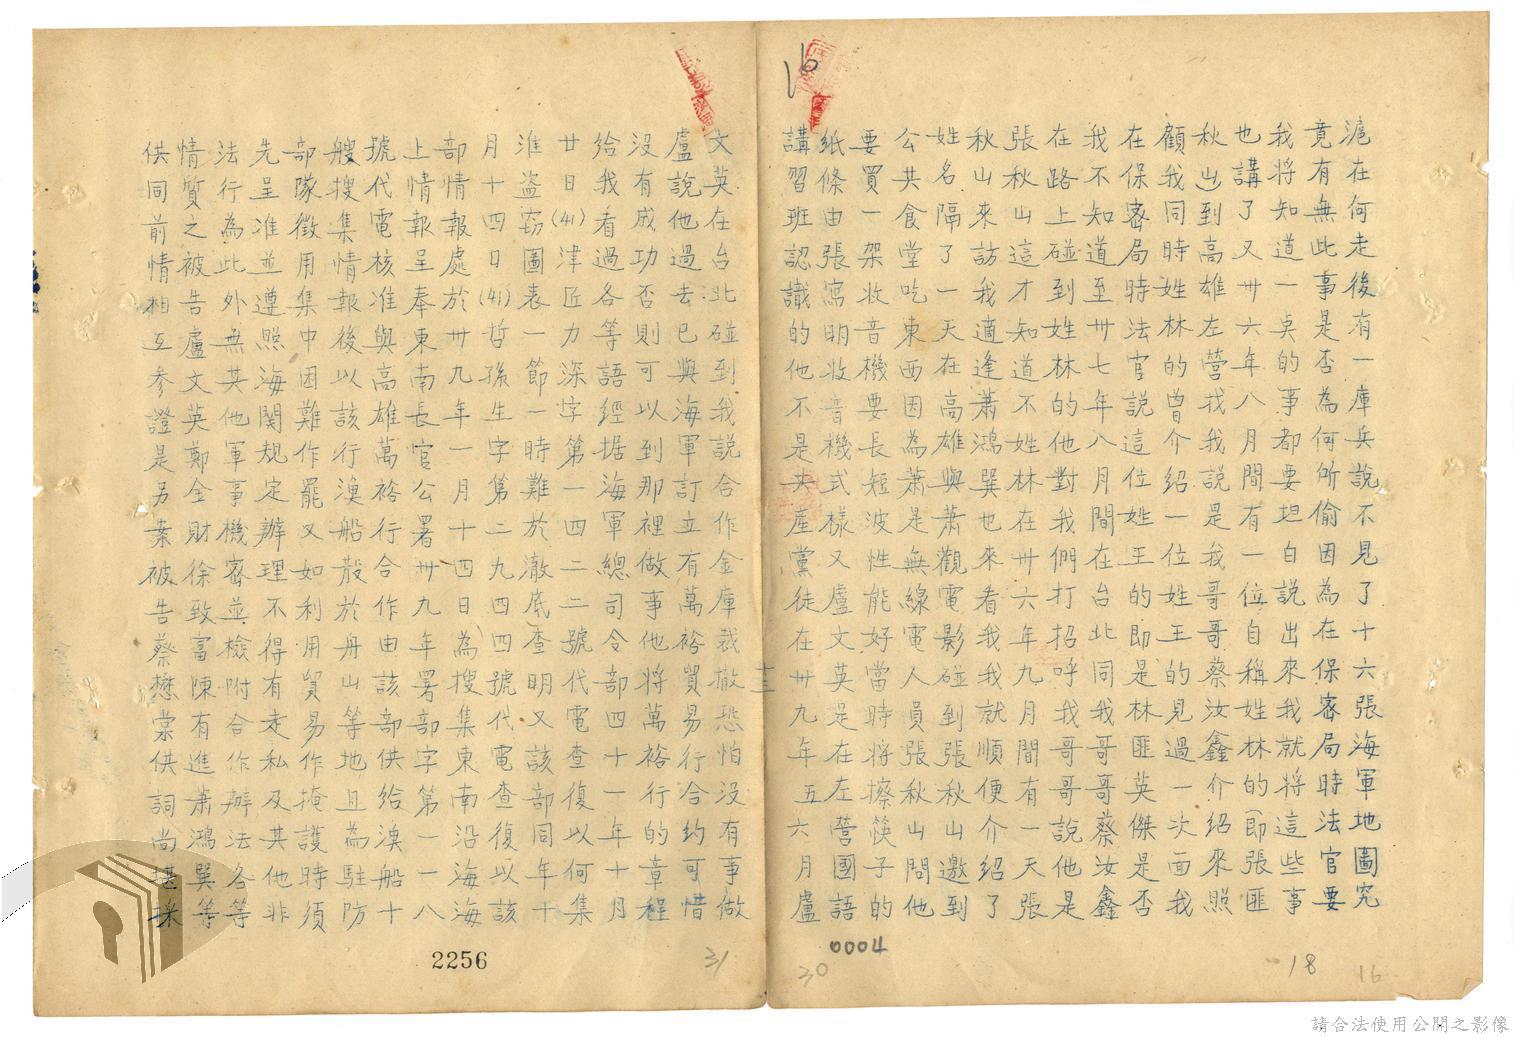 滬在何走後有一庫兵說不見了十六張海軍地圖究
竟有無此事是否為何所偷因為在保密局時法官要
我將知道一点的事都要坦白說出來我就將這些事
也講了又卅六年八月間有一位自稱姓林的即張匪
秋山到高雄左營找我說是我哥哥蔡汝鑫介紹來照
顧我同時姓林的曾介紹一位姓王的見過一次面我
在保密局時法官說這位姓王的即是林匪英傑是否
我不知道至卅七年八月間在台北同我哥哥蔡汝鑫
在路上碰到姓林的他對我們打招呼我哥哥說他是
張秋山這才知道不姓林在卅六年九月間有一天張
秋山來訪我適逢蕭鴻巽也來看我我就順便介紹了
姓名隔了一天在高雄與蕭觀電影碰到張秋山邀到
公共食堂吃東西因為蕭是無線電人員張秋山問他
要買一架收音機要長短波性能好當時將擦筷子的
紙條由張寫明收音機式樣又盧文英是在左營國語
講習班認識的他不是共產黨徒在卅九年五六月盧
文英在台北碰到我說合作金庫裁撤恐怕沒有事做
盧說他過去已與海軍訂立有萬裕貿易行合約可惜
沒有成功否則可以到那裡做事他將萬裕行的章程
給我看過各等語經据海軍總司令部四十一年十月
廿日(41)津匠力深字第一四二二號代電查復以何集
淮盜窃圖表一節一時難於澈底查明又該部同年十
月十四日(41)哲孫生字第二九四四號代電查復以該
部情報處於卅九年一月十四日為搜集東南沿海海
上情報呈奉東南長官公署卅九年署部字第一一八
號代電核准與高雄萬裕行合作由該部供給漁船十
艘搜集情報後以該行漁船散於舟山等地且為駐防
部隊徵用集中困難作罷又如利用貿易作掩護時須
先呈准並遵照海関規定辦理不得有走私及其他非
法行為此外無其他軍事機密並檢附合作辦法各等
情質之被告盧文英鄭全財徐致富陳有進蕭鴻巽等
供同前情相互參證是另案被告蔡懋棠供詞尚堪採
16
十三
0004
30
18
16
31
2256
請合法使用公開之影像